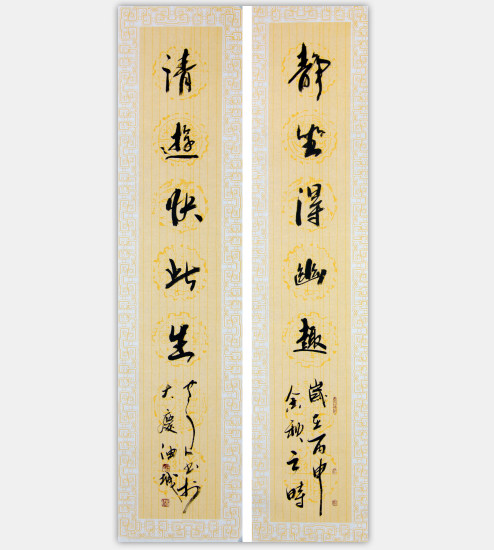 静坐得幽趣
歲在丙申
金秋之時
清遊快此生
书於
大慶油城